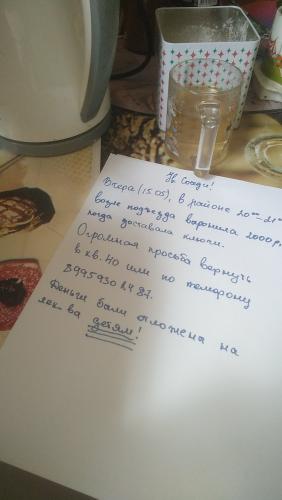 Ув. Соседи!
Вчера (15.05), в районе 20⁰⁰-21⁰⁰
возле подъезда воронила 2000р
когда доставала ключи.
Огромная просьба вернуть
в кв. 40 или по телефону
89959302487.
Деньги были отложена на
лек-ва детям!